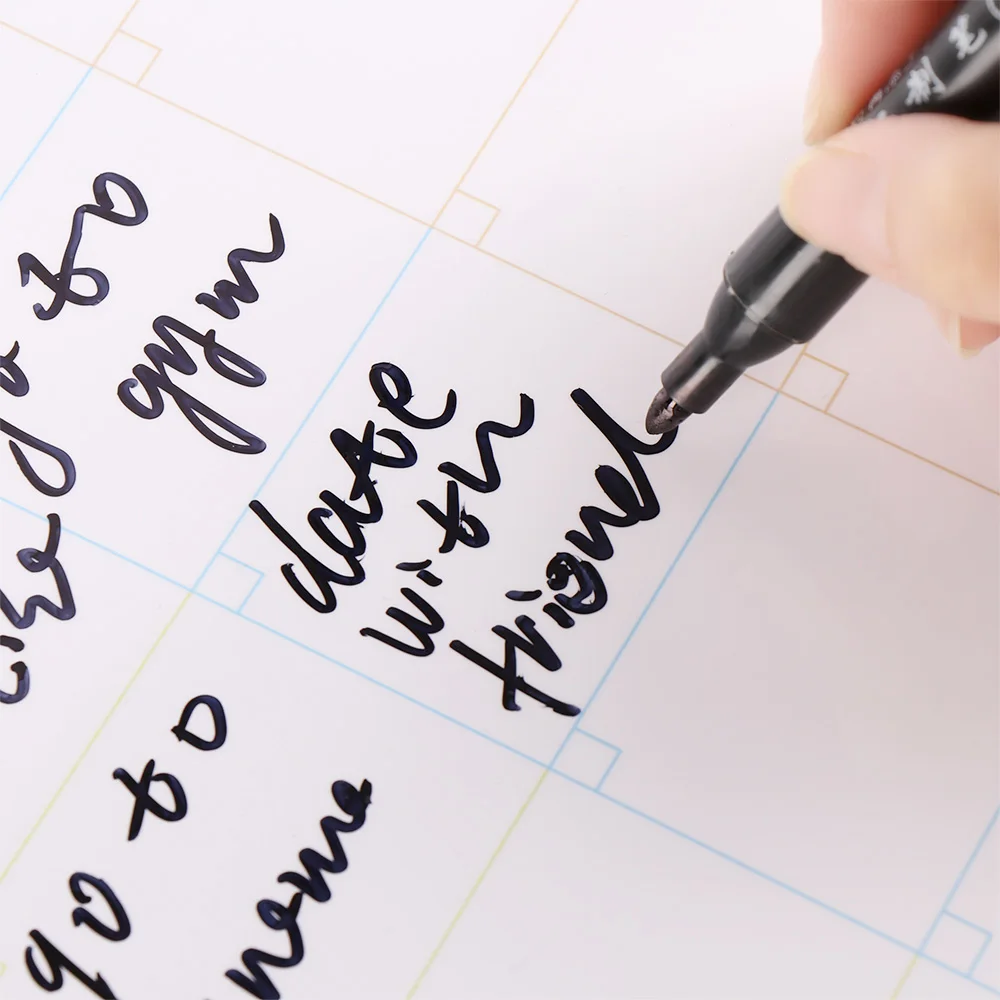 go to
gym
date
with
friend
go to
home